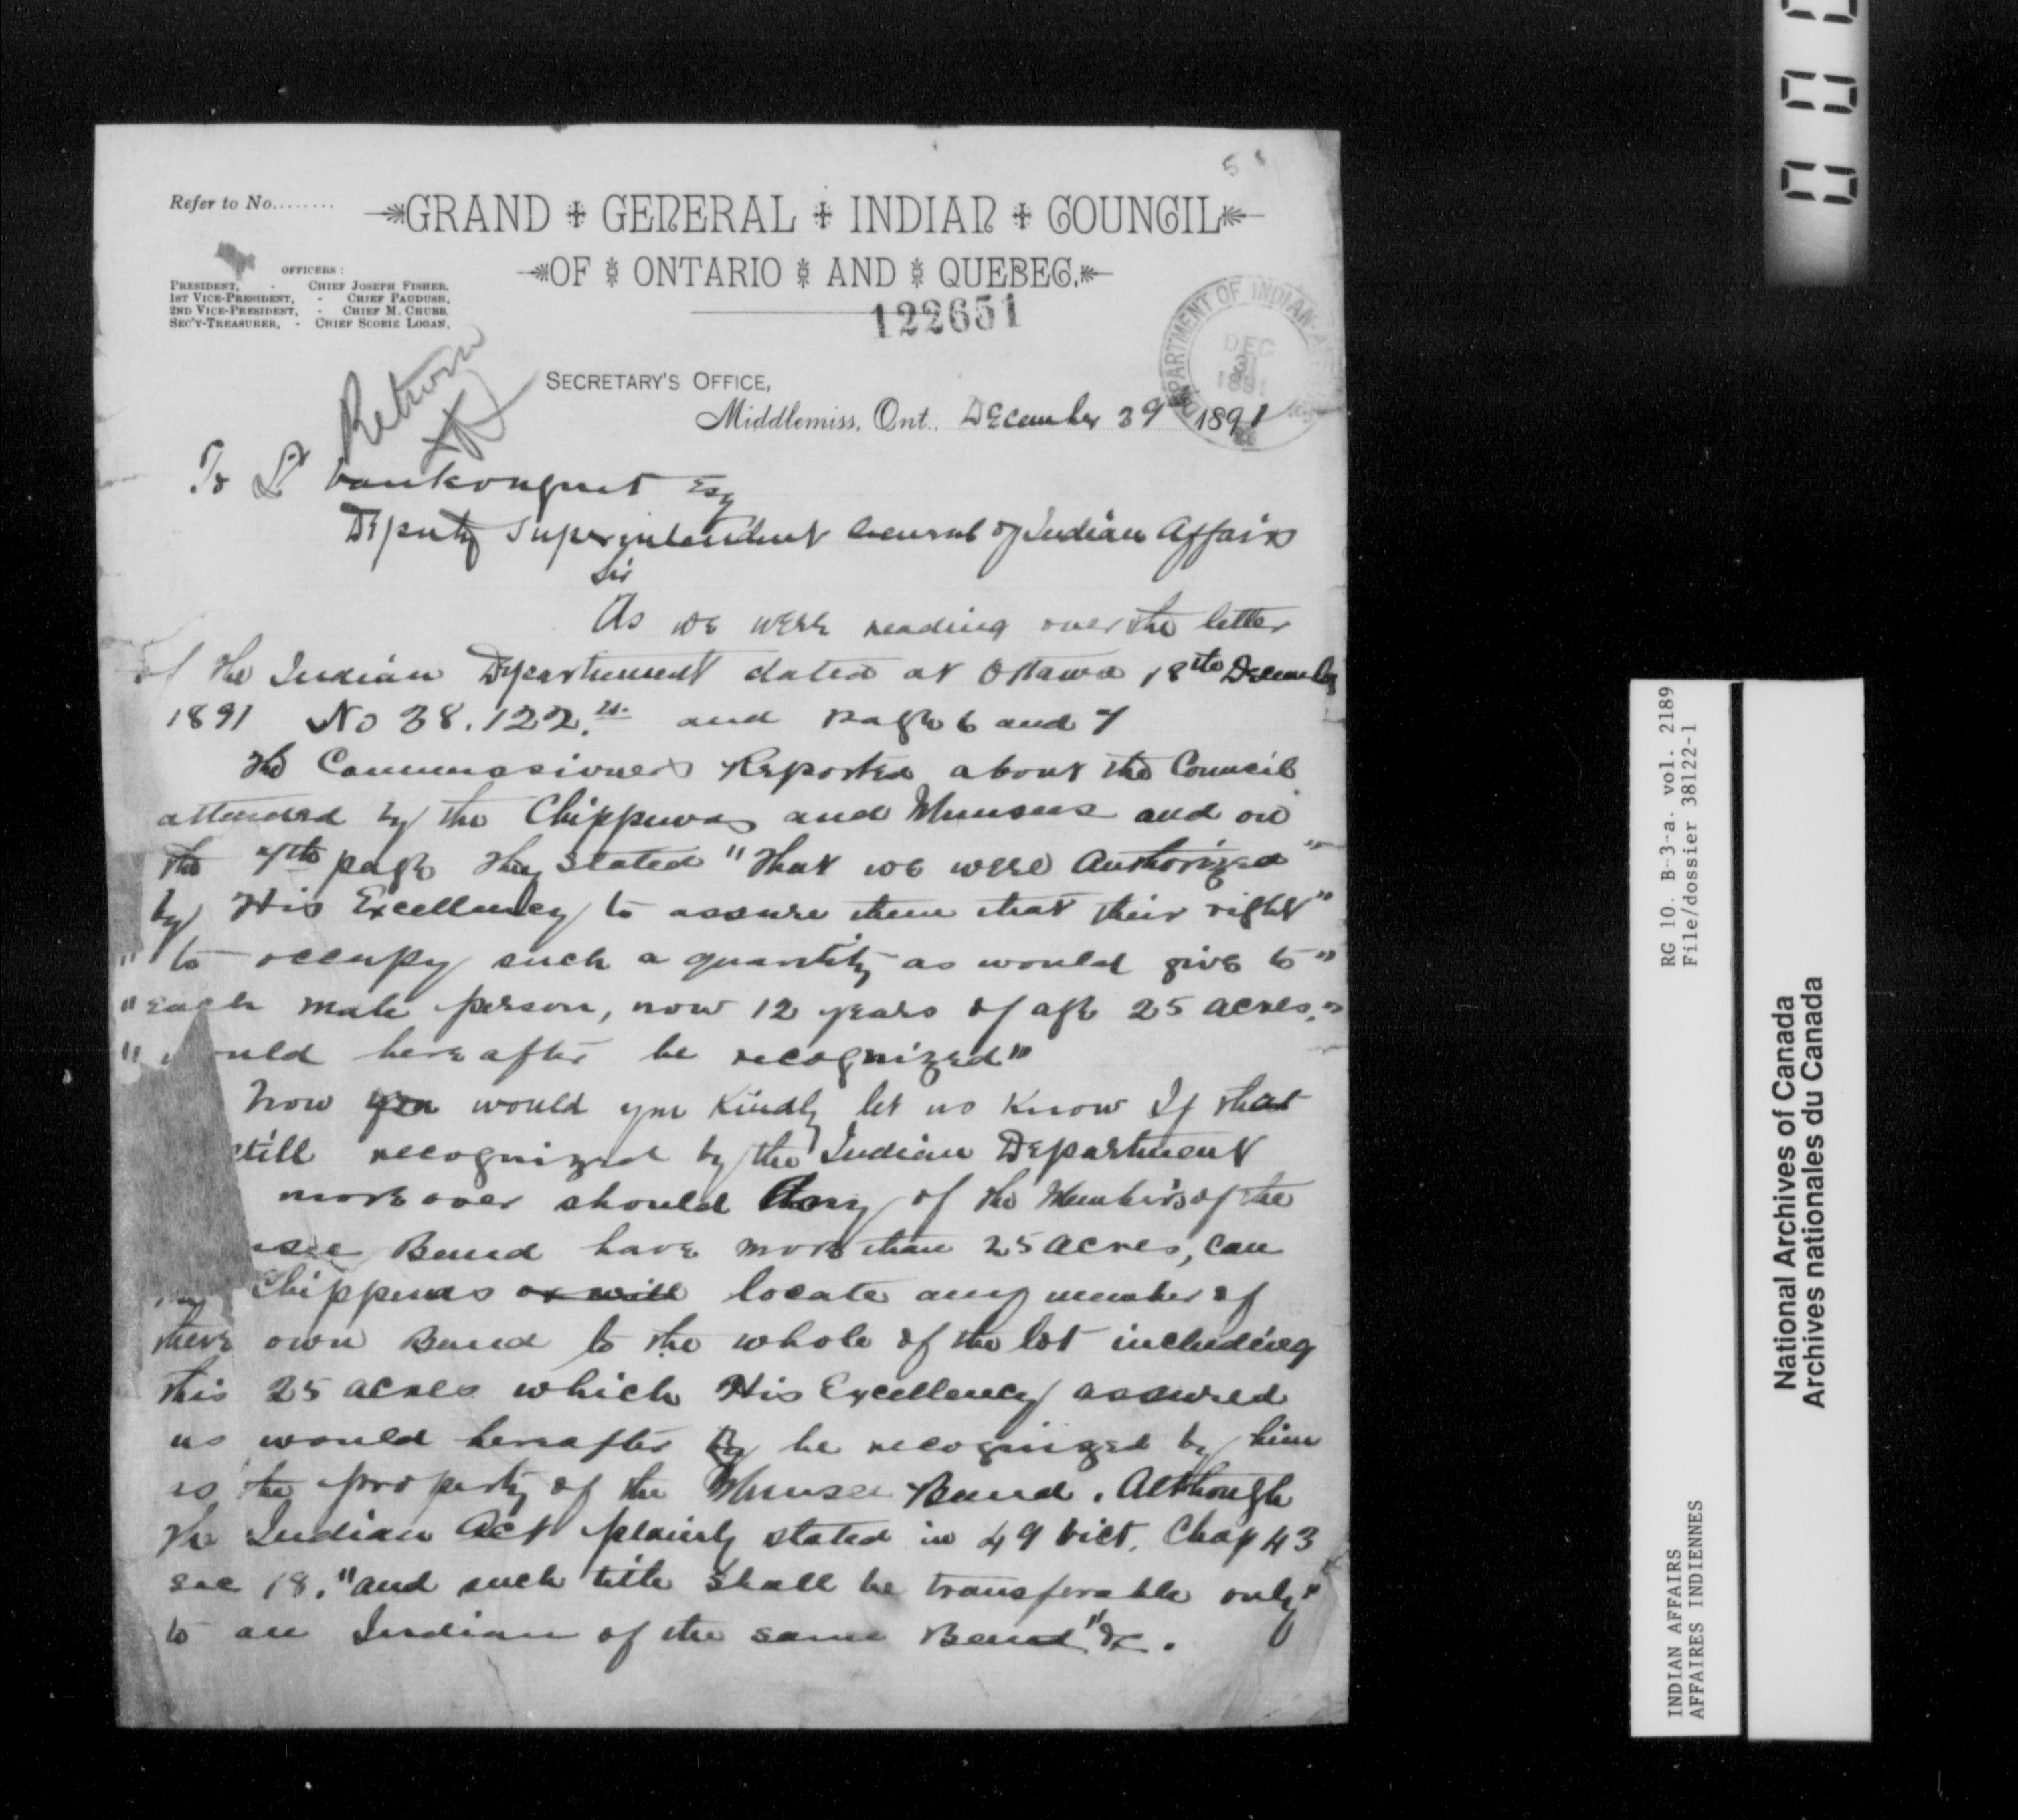 Refer to No........
GRAND GENERAL INDIAN COUNCIL
OF ONTARIO AND QUEBEC.
OFFICERS:
PRESIDENT, - CHIEF JOSEPH FISHER.
1ST VICE-PRESIDENT, - CHIEF PAUDUSH.
2ND VICE-PRESIDENT, - CHIEF M. CHUBB.
SEC'Y-TREASURER, - CHIEF SCOBIE LOGAN.
122651
DEPARTMENT OF INDIAN
DEC
1891
Return
SECRETARY'S OFFICE,
Middlemiss, Ont., December 29 1891
To L vankoughnet Esq
Deputy Superintendent General of Indian Affairs
Sir
As we were reading over the letter
of the Indian Department dated at Ottawa 18th December
1891 No 38.122. and page 6 and 7
The Commissioners Reported about the Council
attended by the Chippewas and Munsees and on
the 7th page they stated "that we were Authorized"
by His Excellency to assure them that their right"
"to occupy such a quantity as would give to"
"each male person, now 12 years of age 25 acres."
"would hereafter be recognized"
Now you would you Kindly let us know If that
still recognized by the Indian Department
moreover should Any of the Members of the
see Band have more than 25 acres, can
Chippewas or will locate any member of
there own Band to the whole of the lot including
this 25 acres which His Excellency assured
us would hereafter by be recognized by him
as the property of the Munsee Band. Although
the Indian Act plainly stated in 49 Vict. Chap 43
sec 18. "and such title shall be transferable only"
to an Indian of the same Band" &c.
RG 10. B-3-a. vol. 2189
File/dossier 38122-1
INDIAN AFFAIRS
AFFAIRES INDIENNES
National Archives of Canada
Archives nationales du Canada